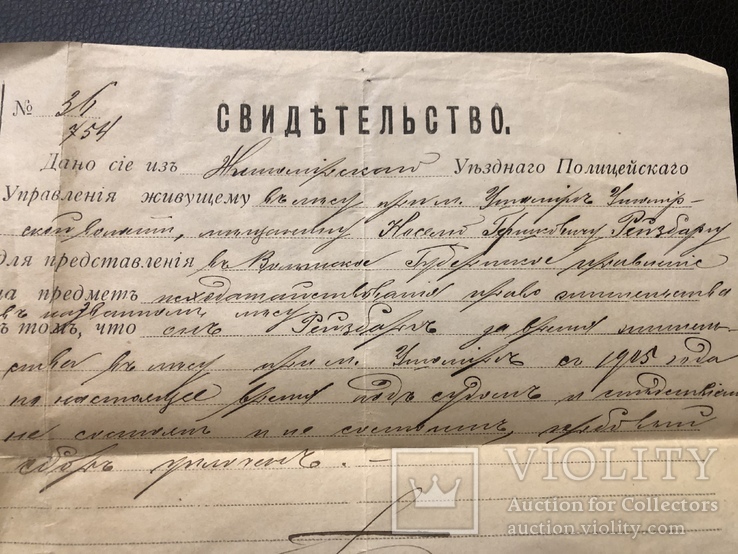 № 36
754
СВИДѢТЕЛЬСТВО.
Дано сіе изъ Житомірскаго Уѣзднаго Полицейскаго
Управленія живущему въ лѣсу при м. Ушомірѣ Ушомір-
ской волости, мѣщанину Носелю Гершковичу Рейзбаргу
для представленія въ Волынское Губернское правленіе
на предметъ исходатайствованія право жительства
въ названномъ лѣсу
въ томъ, что онъ Рейзбаргъ за время житель-
ства въ лѣсу при м. Ушомірѣ съ 1905 года
по настоящее время подъ судомъ и слѣдствіемъ
не состоялъ и не состоитъ,
сборъ уплоченъ. –
VIOLITY
Auction for Collectors
auction-violity.com